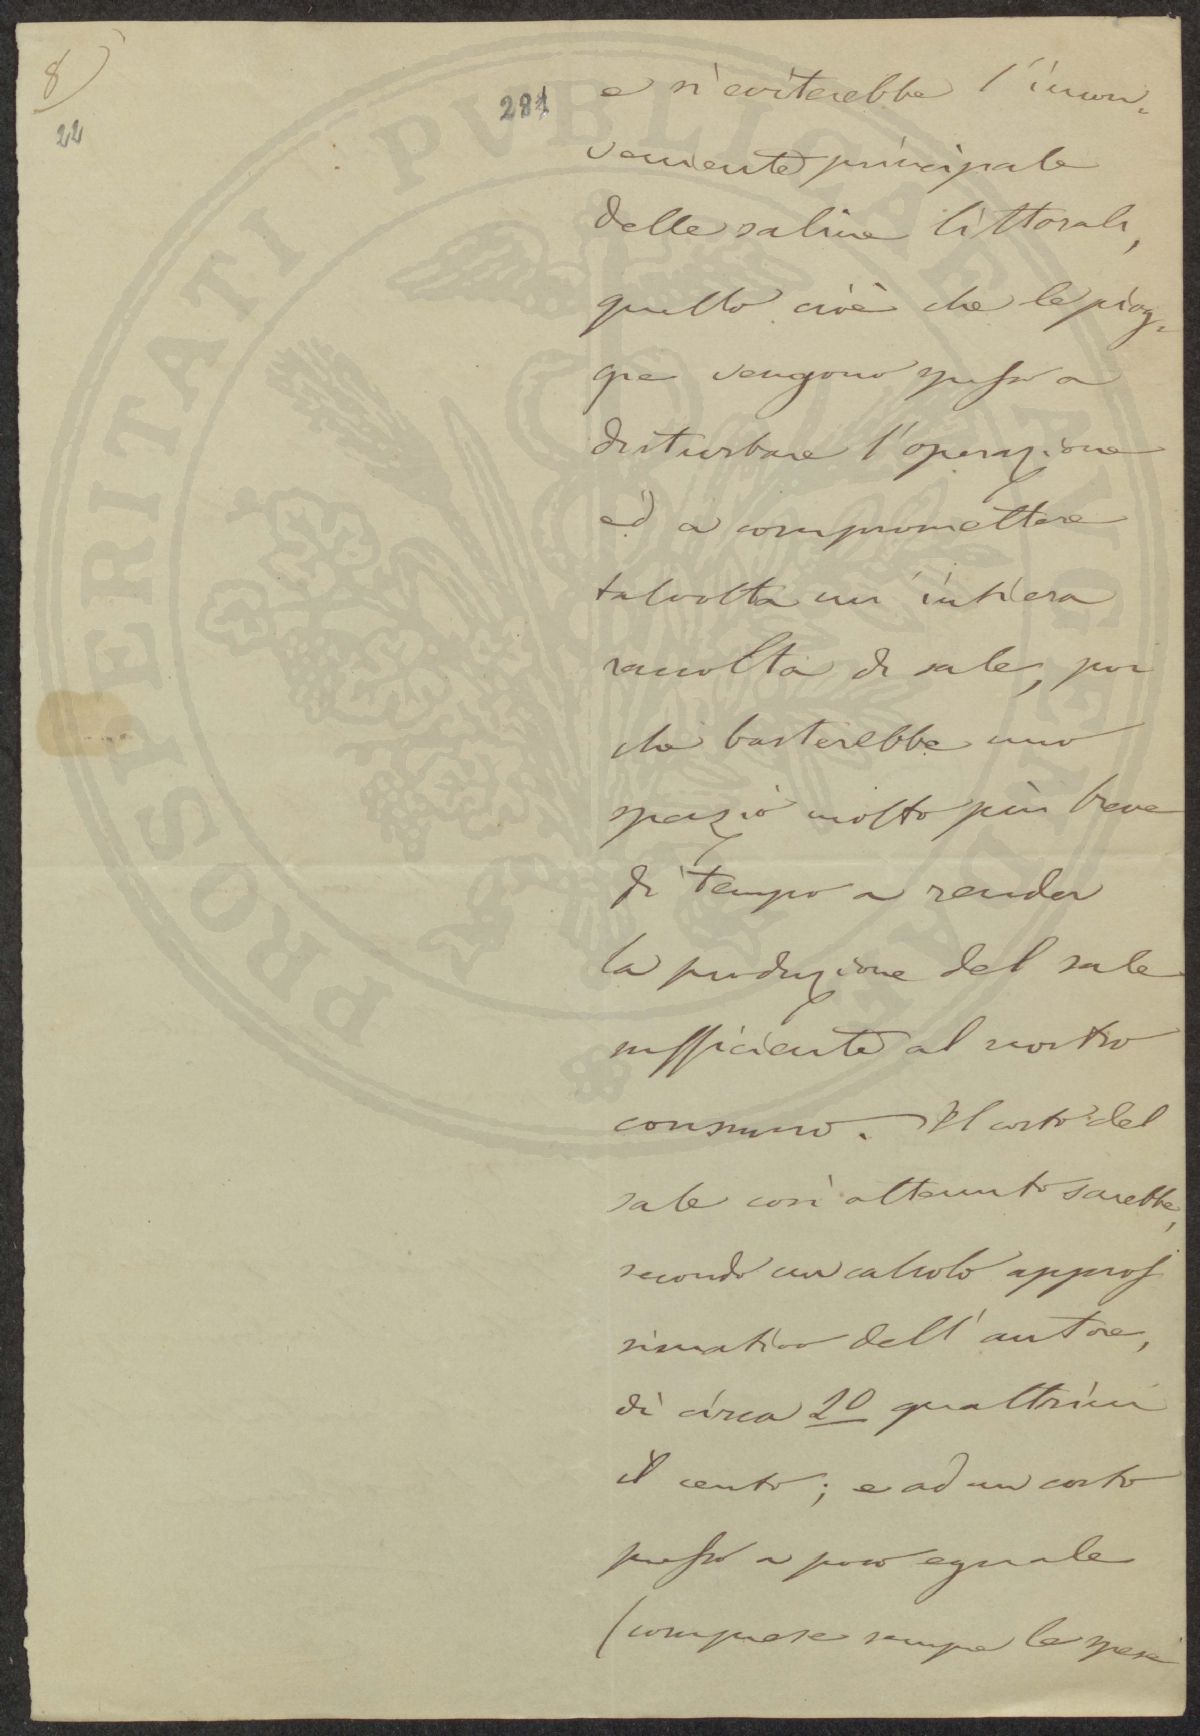 8)
22
281
e si eviterebbe l'incon-
veniente principale
delle saline littorali,
quello cioè che le piog-
gie vengono spesso a
disturbare l'operazione
ed a compromettere
talvolta un'intiera
raccolta di sale, poi
chè basterebbe uno
spazio molto più breve
di tempo a render
la produzione del sale
sufficiente al nostro
consumo. Il costo del
sale così ottenuto sarebbe,
secondo un calcolo appros
simativo dell'autore,
di circa 20 quattrini
il cento; e ad un costo
presso a poco eguale
(comprese sempre le spese
PROSPERITATI PVBLICAE AVGENDAE